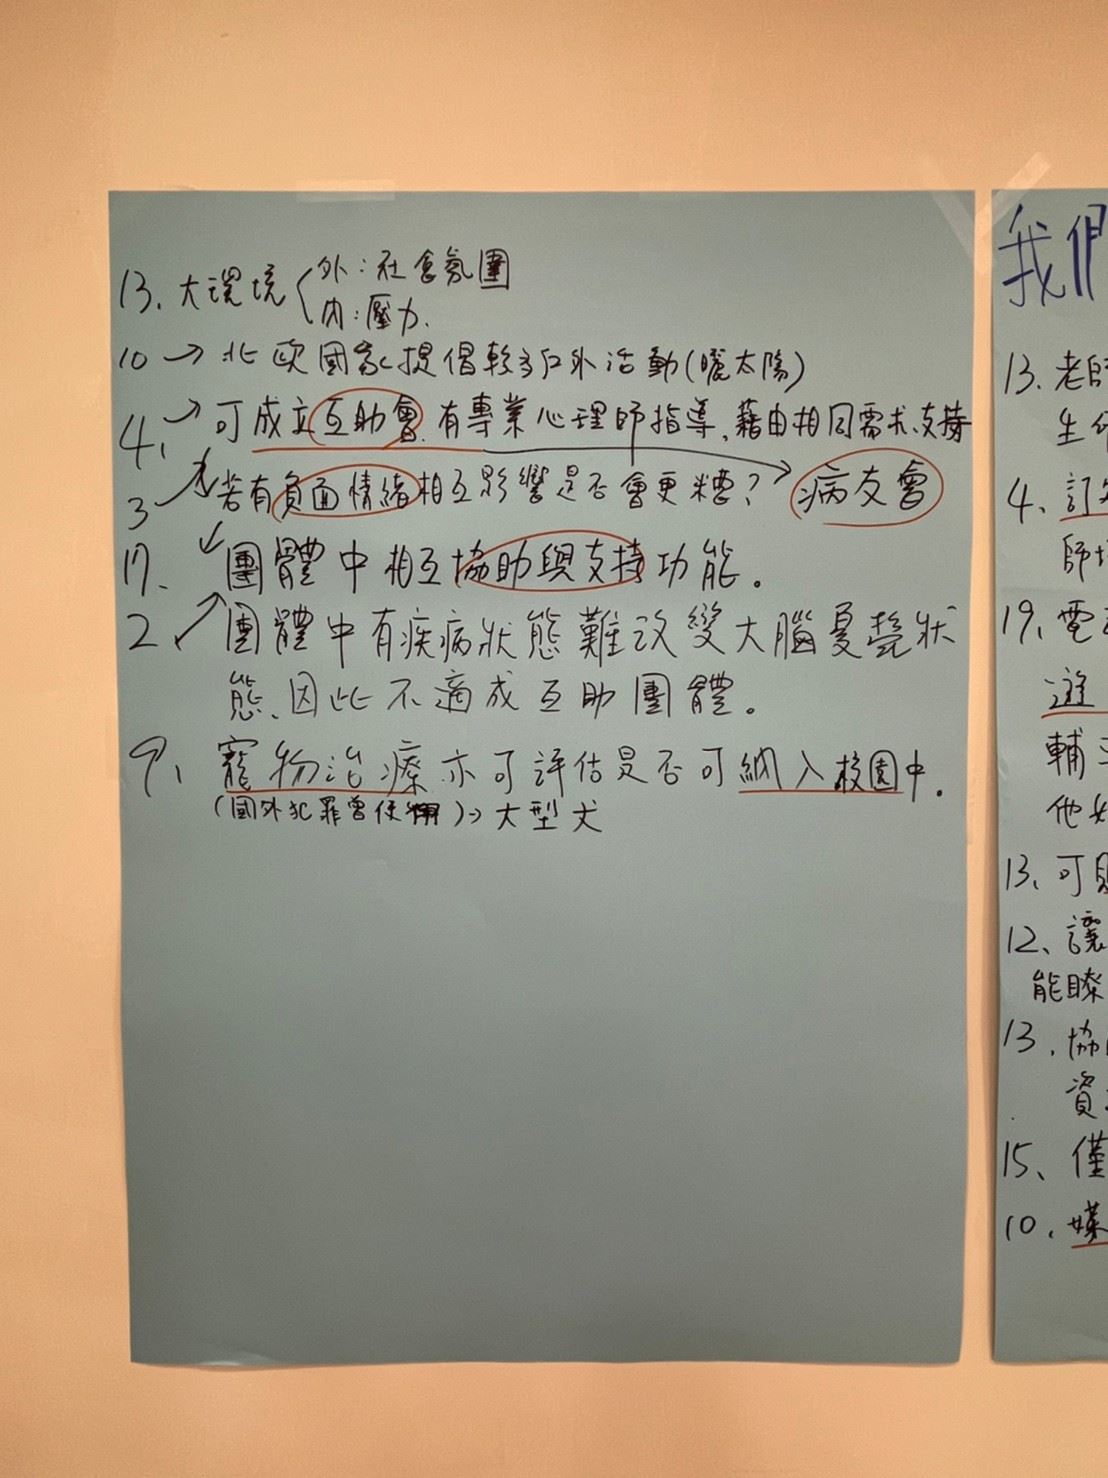 13. 大環境
外：社會氛圍
內：壓力.
10 → 北歐國家提倡較多戶外活動(曬太陽)
4. → 可成立互助會.有專業心理師指導,藉由相同需求、支持
3 → 若有負面情緒相互影響是否會更糟? 病友會
17. 團體中相互協助與支持功能。
2. 團體中有疾病狀態難改變大腦憂鬱狀
態、因此不適成互助團體。
9、寵物治療亦可評估是否可納入校園中.
(國外犯罪曾使用)→大型犬
我們
13. 老師
生
4.
師
19、電
遊
輔
他
13、可
12、讓
能瞭
13. 協
資
15、僅
10. 媒